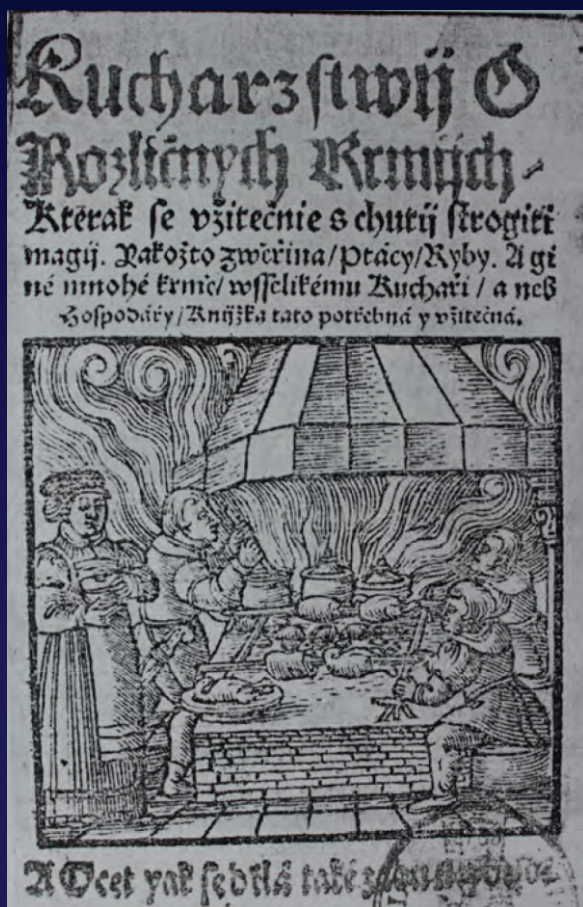 Kucharzstwij O
Rozličných Krmijch
Kterak se vžitečnie s chutij strogiti
magij. Yakožto zwěřina/Ptácy/Ryby. A gi
né mnohé krmě/ wsselikému Kuchaři/ a neb
Hospodáři/Knijžka tato potřebná y vžitečná.
A Ocet yak se dělá také